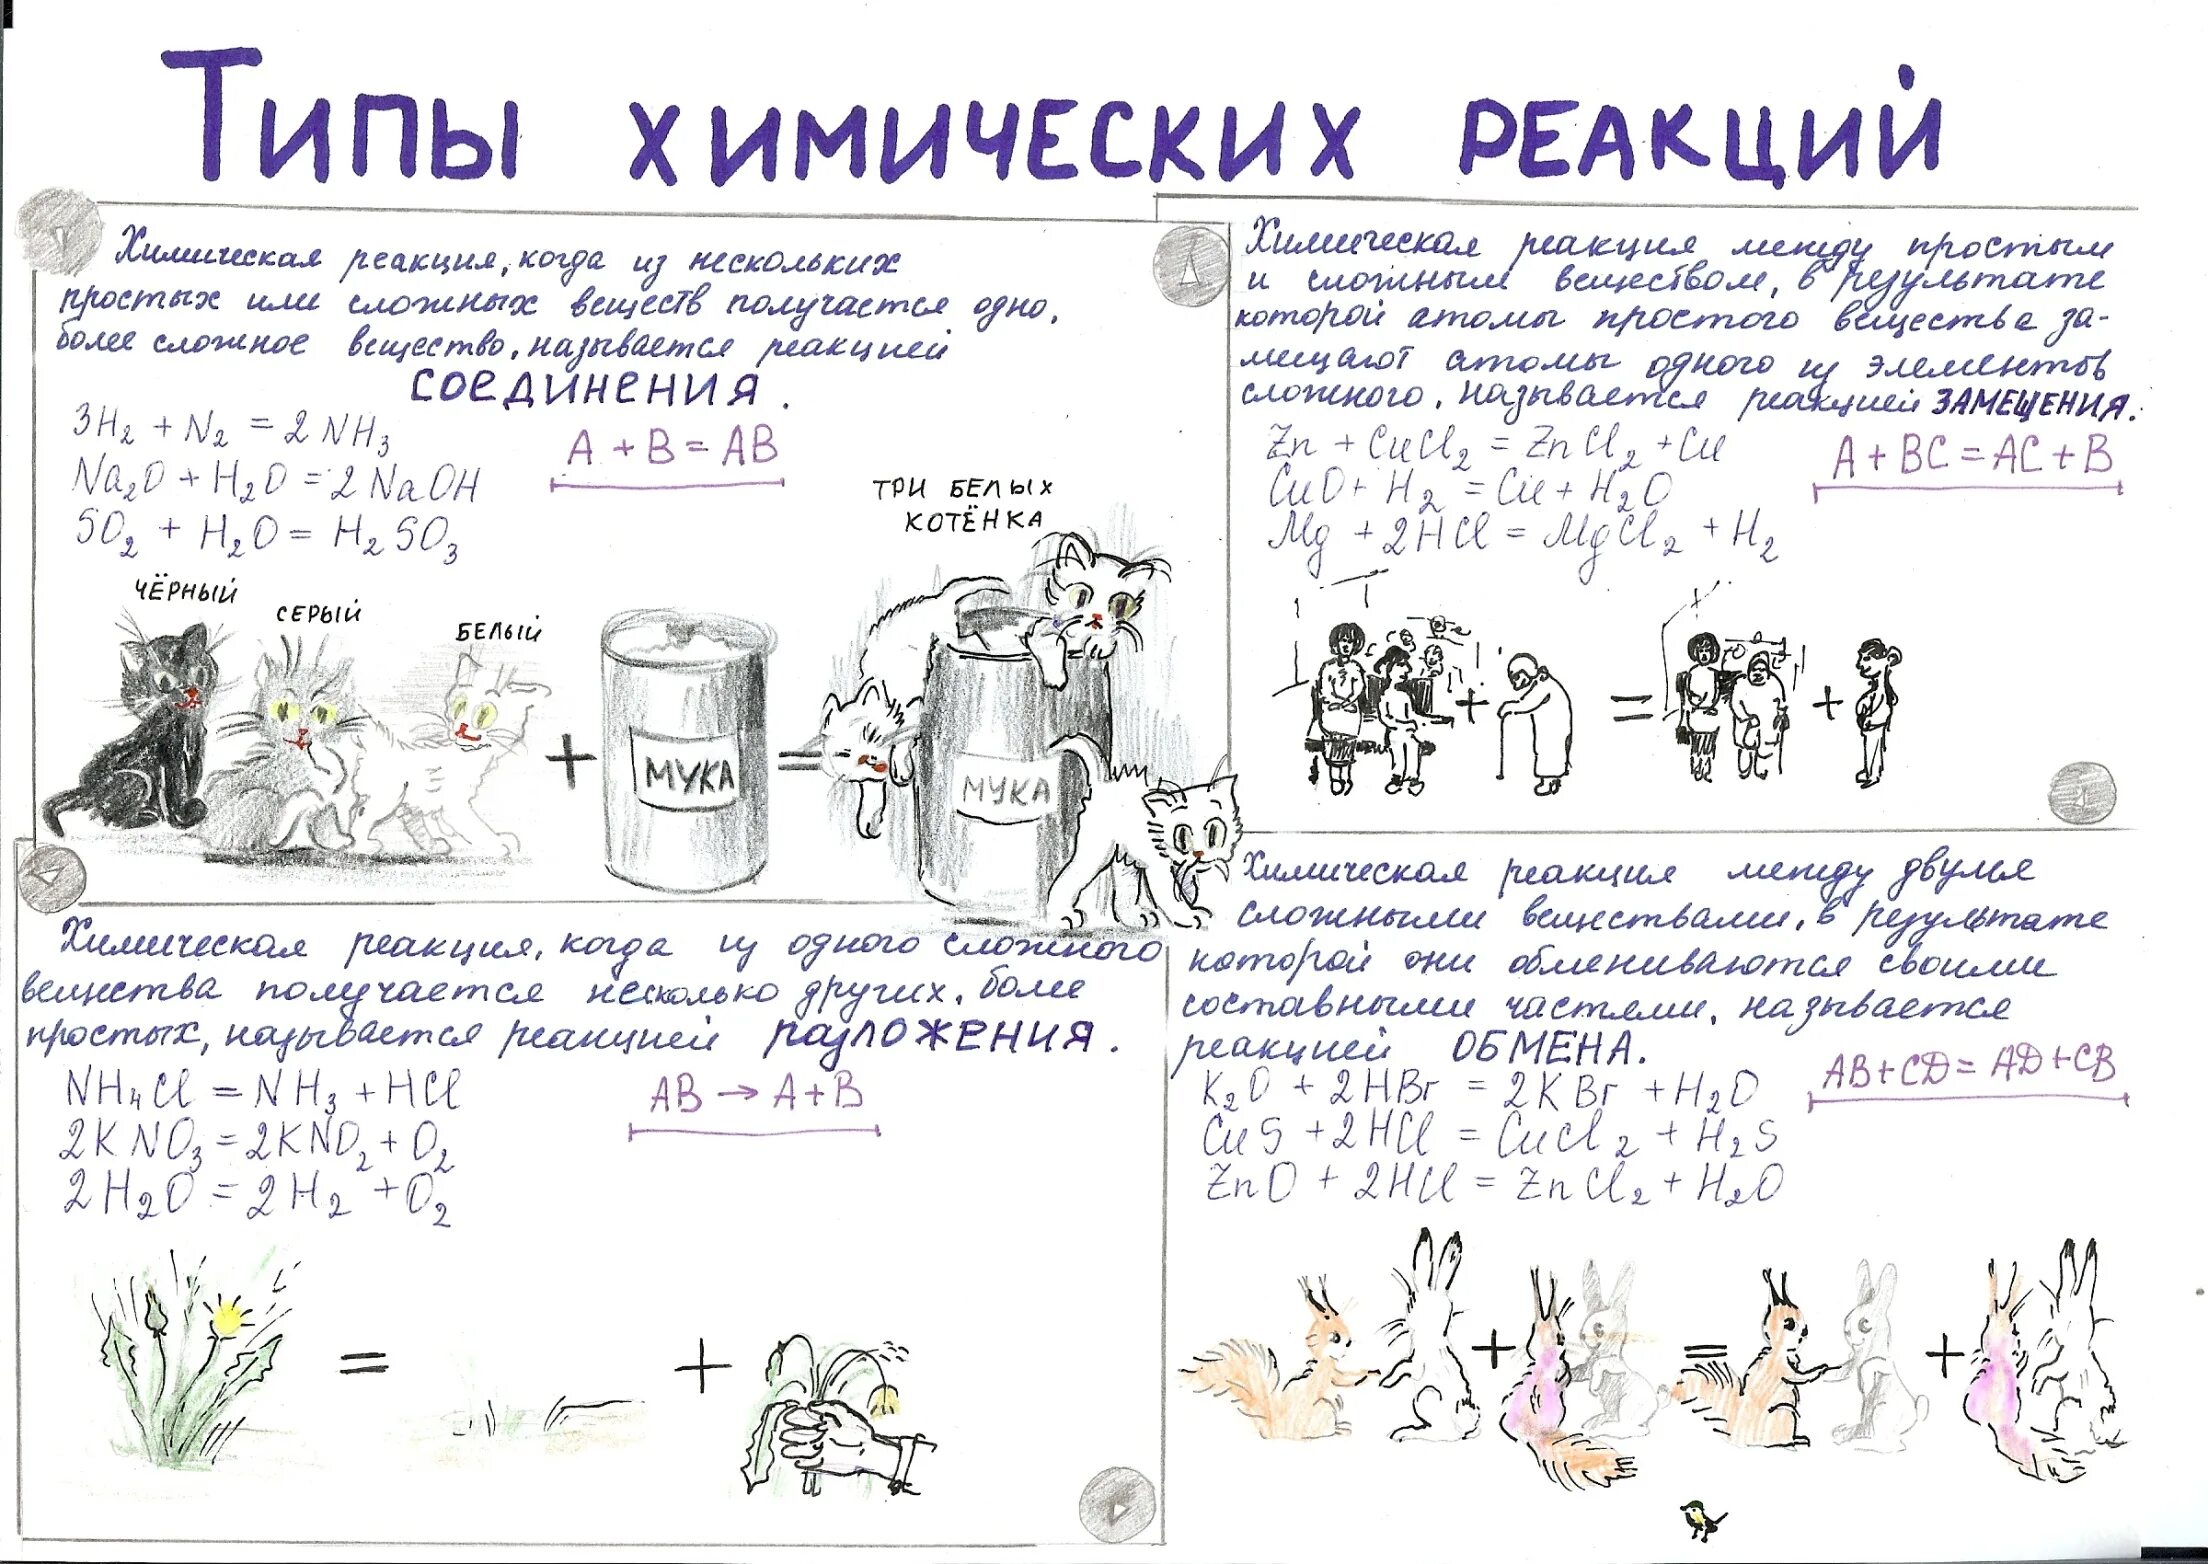 ТИПЫ ХИМИЧЕСКИХ РЕАКЦИЙ
Химическая реакция, когда из нескольких
простых или сложных веществ получается одно,
более сложное вещество, называется реакцией
СОЕДИНЕНИЯ.
3H₂ + N₂ = 2NH₃
Na₂O + H₂O = 2NaOH
SO₂ + H₂O = H₂SO₃
A + B = AB
ЧЁРНЫЙ
СЕРЫЙ
БЕЛЫЙ
+
МУКА
=
ТРИ БЕЛЫХ
КОТЁНКА
МУКА
Химическая реакция между простым
и сложным веществом, в результате
которой атомы простого вещества за-
мещают атомы одного из элементов
сложного, называется реакцией ЗАМЕЩЕНИЯ.
Zn + CuCl₂ = ZnCl₂ + Cu
CuO + H₂ = Cu + H₂O
Mg + 2HCl = MgCl₂ + H₂
A + BC = AC + B
+ = +
Химическая реакция, когда из одного сложного
вещества получается несколько других, более
простых, называется реакцией РАЗЛОЖЕНИЯ.
NH₄Cl = NH₃ + HCl
2KNO₃ = 2KNO₂ + O₂
2H₂O = 2H₂ + O₂
AB → A + B
= +
Химическая реакция между двумя
сложными веществами, в результате
которой они обмениваются своими
составными частями, называется
реакцией ОБМЕНА.
K₂O + 2HBr = 2KBr + H₂O
CuS + 2HCl = CuCl₂ + H₂S
ZnO + 2HCl = ZnCl₂ + H₂O
AB + CD = AD + CB
+ = +